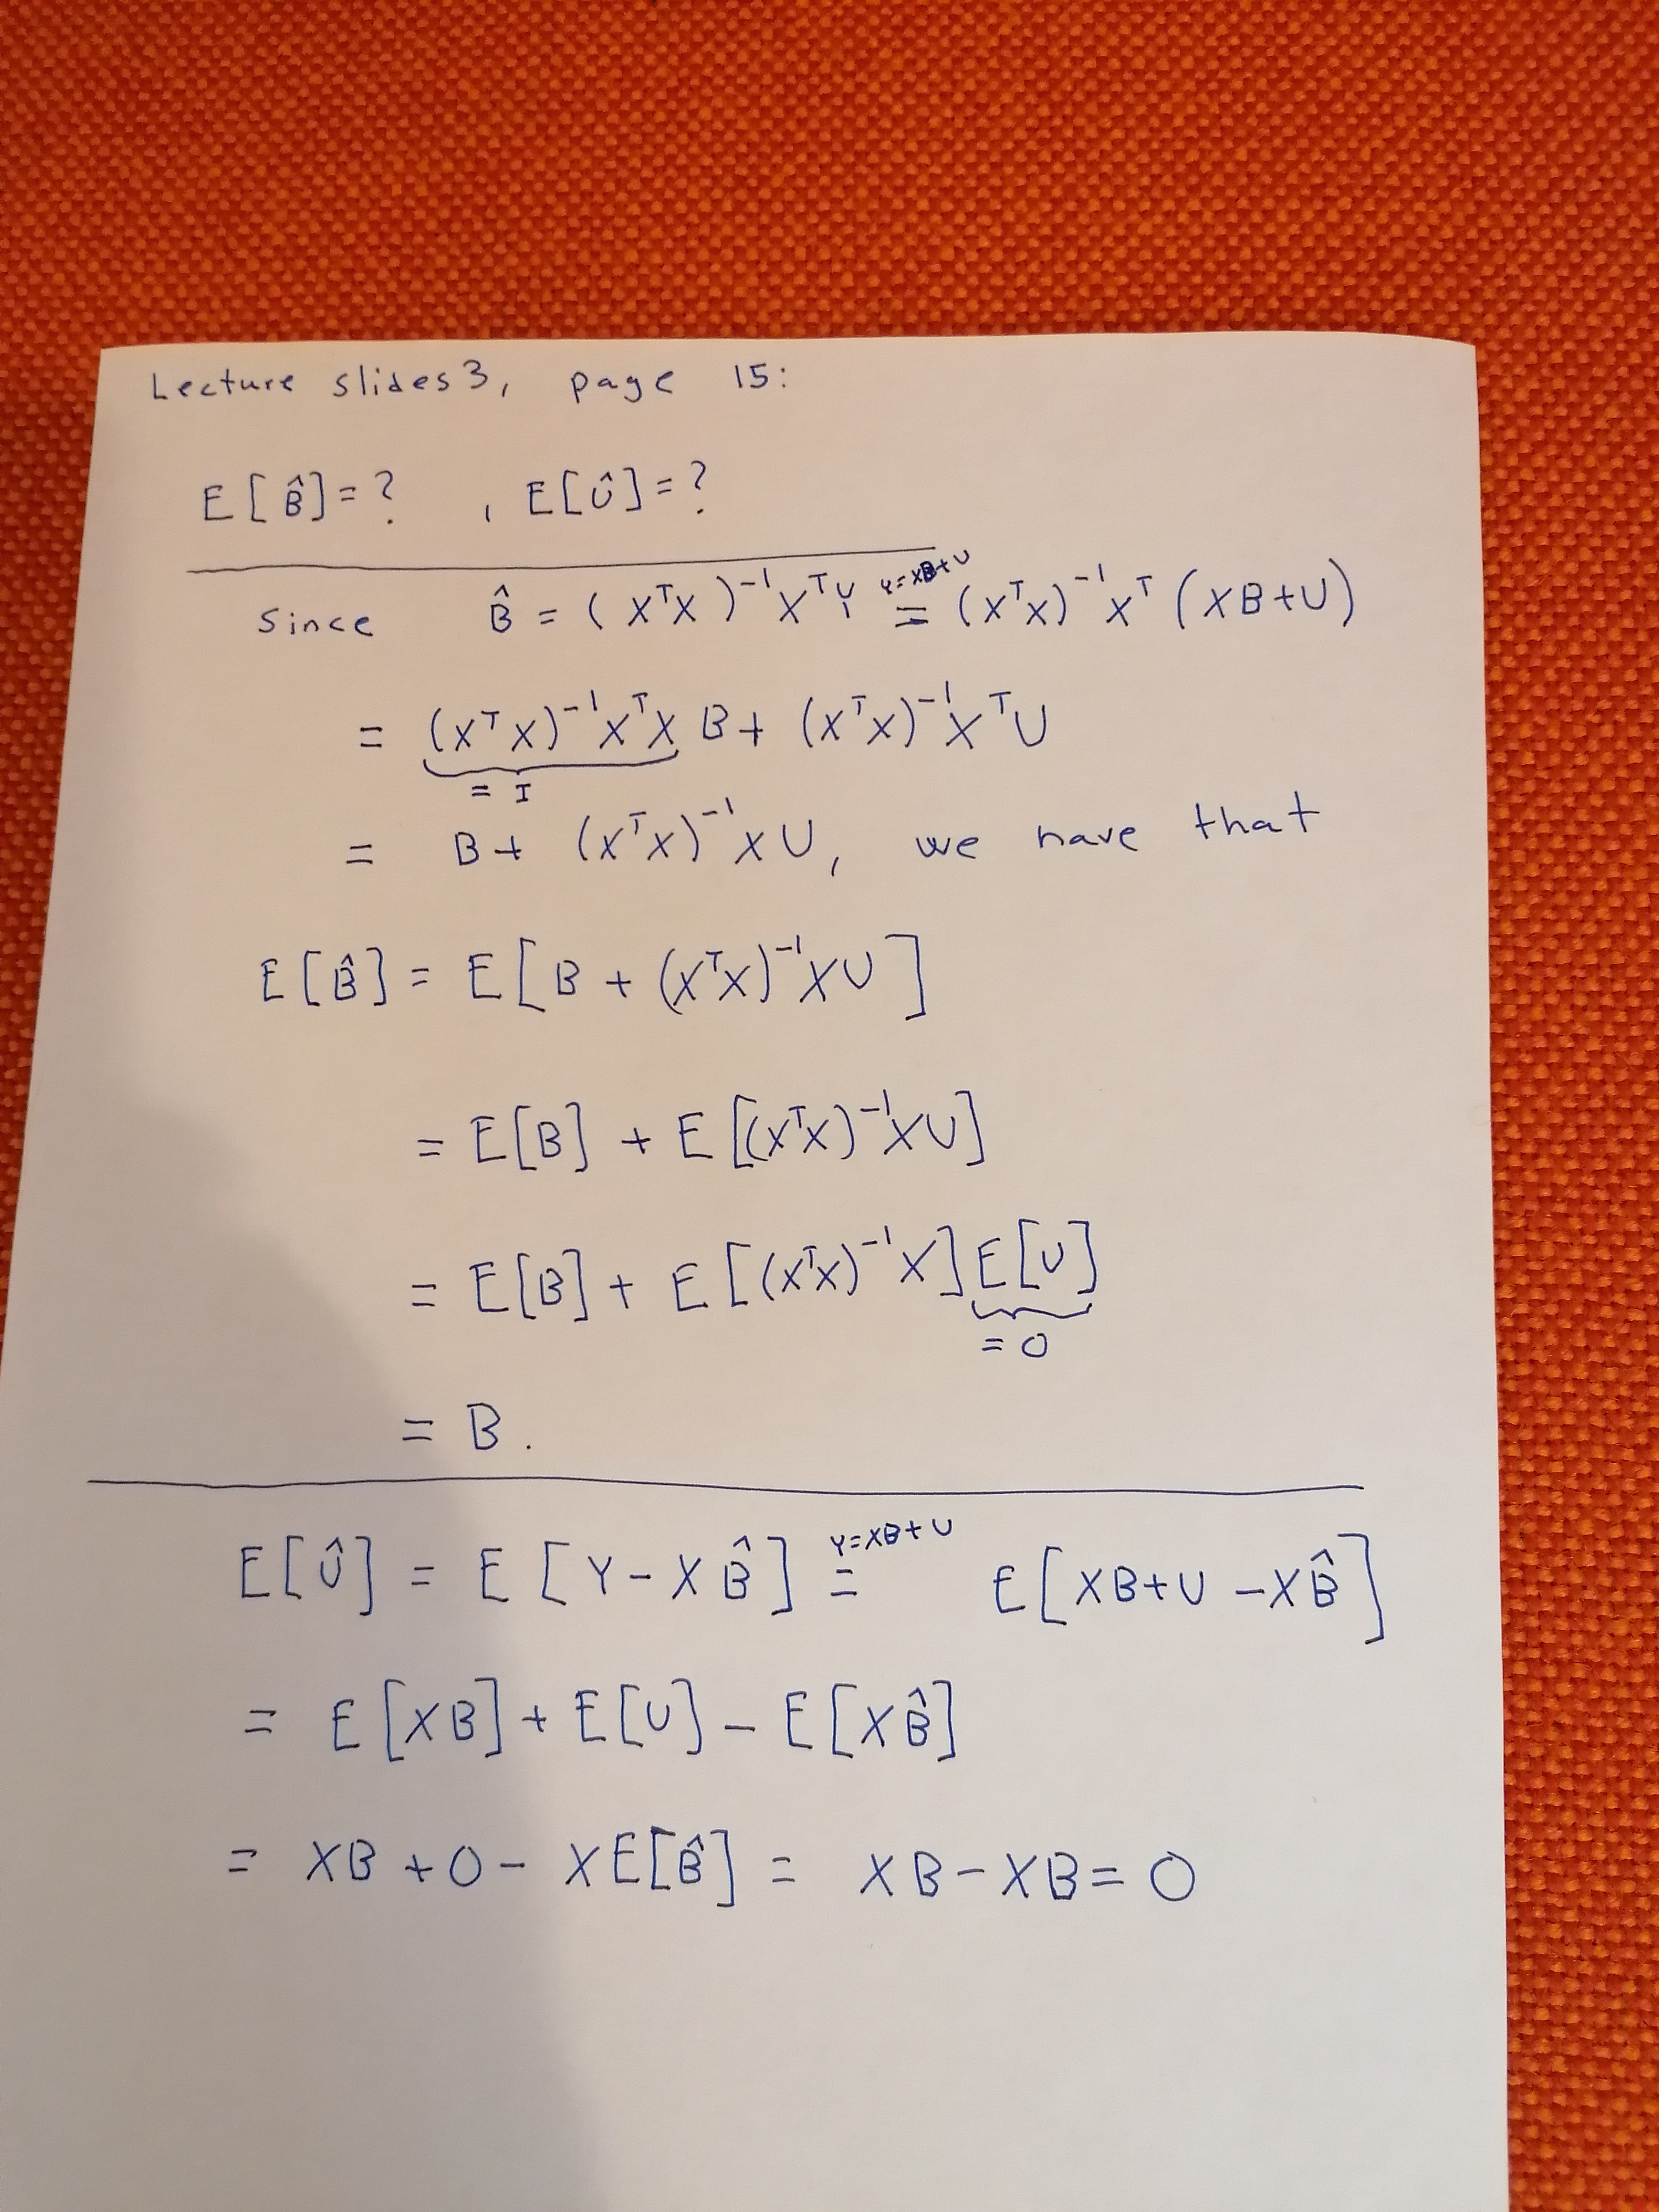 Lecture slides 3, page 15:
E[B̂]=? , E[Û]=?
Since B̂ = (XᵀX)⁻¹XᵀY =^{Y=XB+U} (XᵀX)⁻¹Xᵀ(XB+U)
= (XᵀX)⁻¹XᵀX B + (XᵀX)⁻¹XᵀU
= I
= B + (XᵀX)⁻¹XU, we have that
E[B̂] = E[B + (XᵀX)⁻¹XU]
= E[B] + E[(XᵀX)⁻¹XU]
= E[B] + E[(XᵀX)⁻¹X]E[U]
= 0
= B.
E[Û] = E[Y-XB̂] =^{Y=XB+U} E[XB+U-XB̂]
= E[XB] + E[U] - E[XB̂]
= XB + 0 - XE[B̂] = XB-XB=0